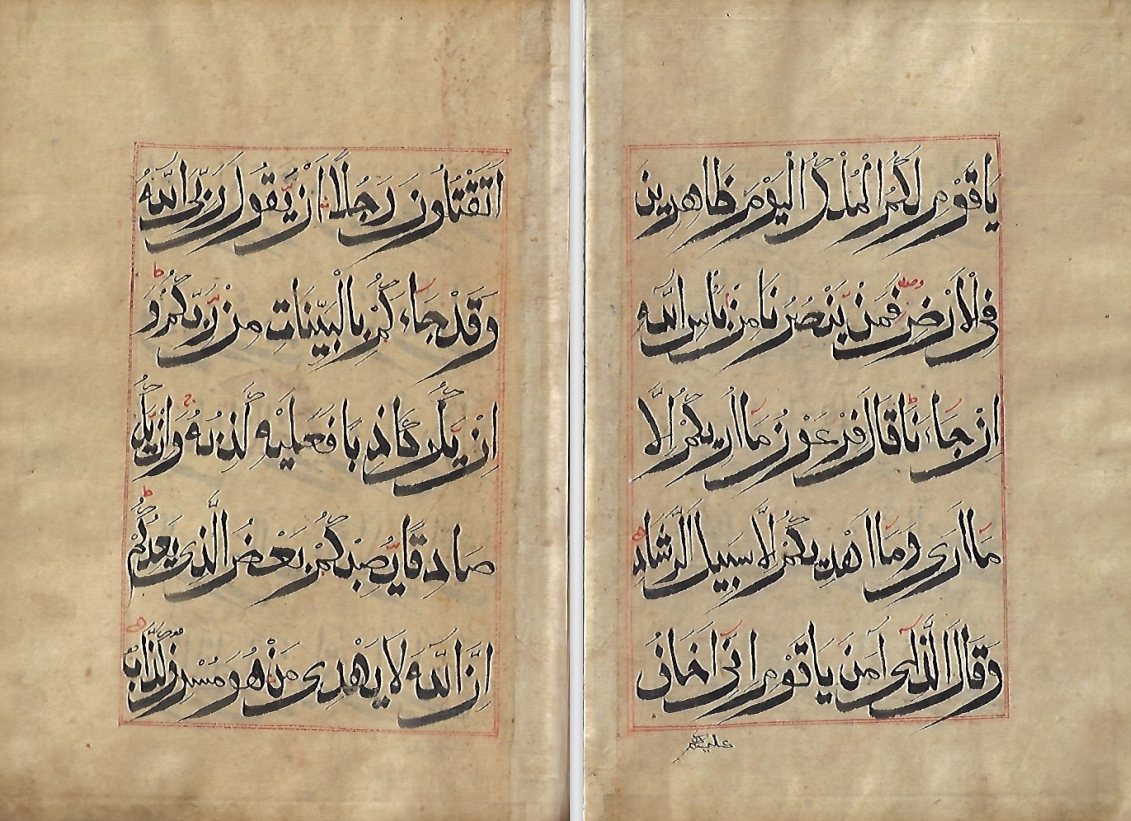 اَتَقْتُلُونَ رَجُلًا اَنْ يَّقُولَ رَبِّىَ اللّٰهُ
وَقَدْ جَاءَكُمْ بِالْبَيِّنَاتِ مِنْ رَّبِّكُمْ وَ
اِنْ يَّكُ كَاذِبًا فَعَلَيْهِ كَذِبُهُ وَاِنْ يَّكُ
صَادِقًا يُّصِبْكُمْ بَعْضُ الَّذِى يَعِدُكُمْ
اِنَّ اللّٰهَ لَا يَهْدِى مَنْ هُوَ مُسْرِفٌ كَذَّابٌ
يَاقَوْمِ لَكُمُ الْمُلْكُ الْيَوْمَ ظَاهِرِينَ
فِى الْاَرْضِ فَمَنْ يَّنْصُرُنَا مِنْ بَاْسِ اللّٰهِ
اِنْ جَاءَنَا قَالَ فِرْعَوْنُ مَا اُرِيكُمْ اِلَّا
مَا اَرَى وَمَا اَهْدِيكُمْ اِلَّا سَبِيلَ الرَّشَادِ
وَقَالَ الَّذِى اٰمَنَ يَاقَوْمِ اِنِّى اَخَافُ
عليكم